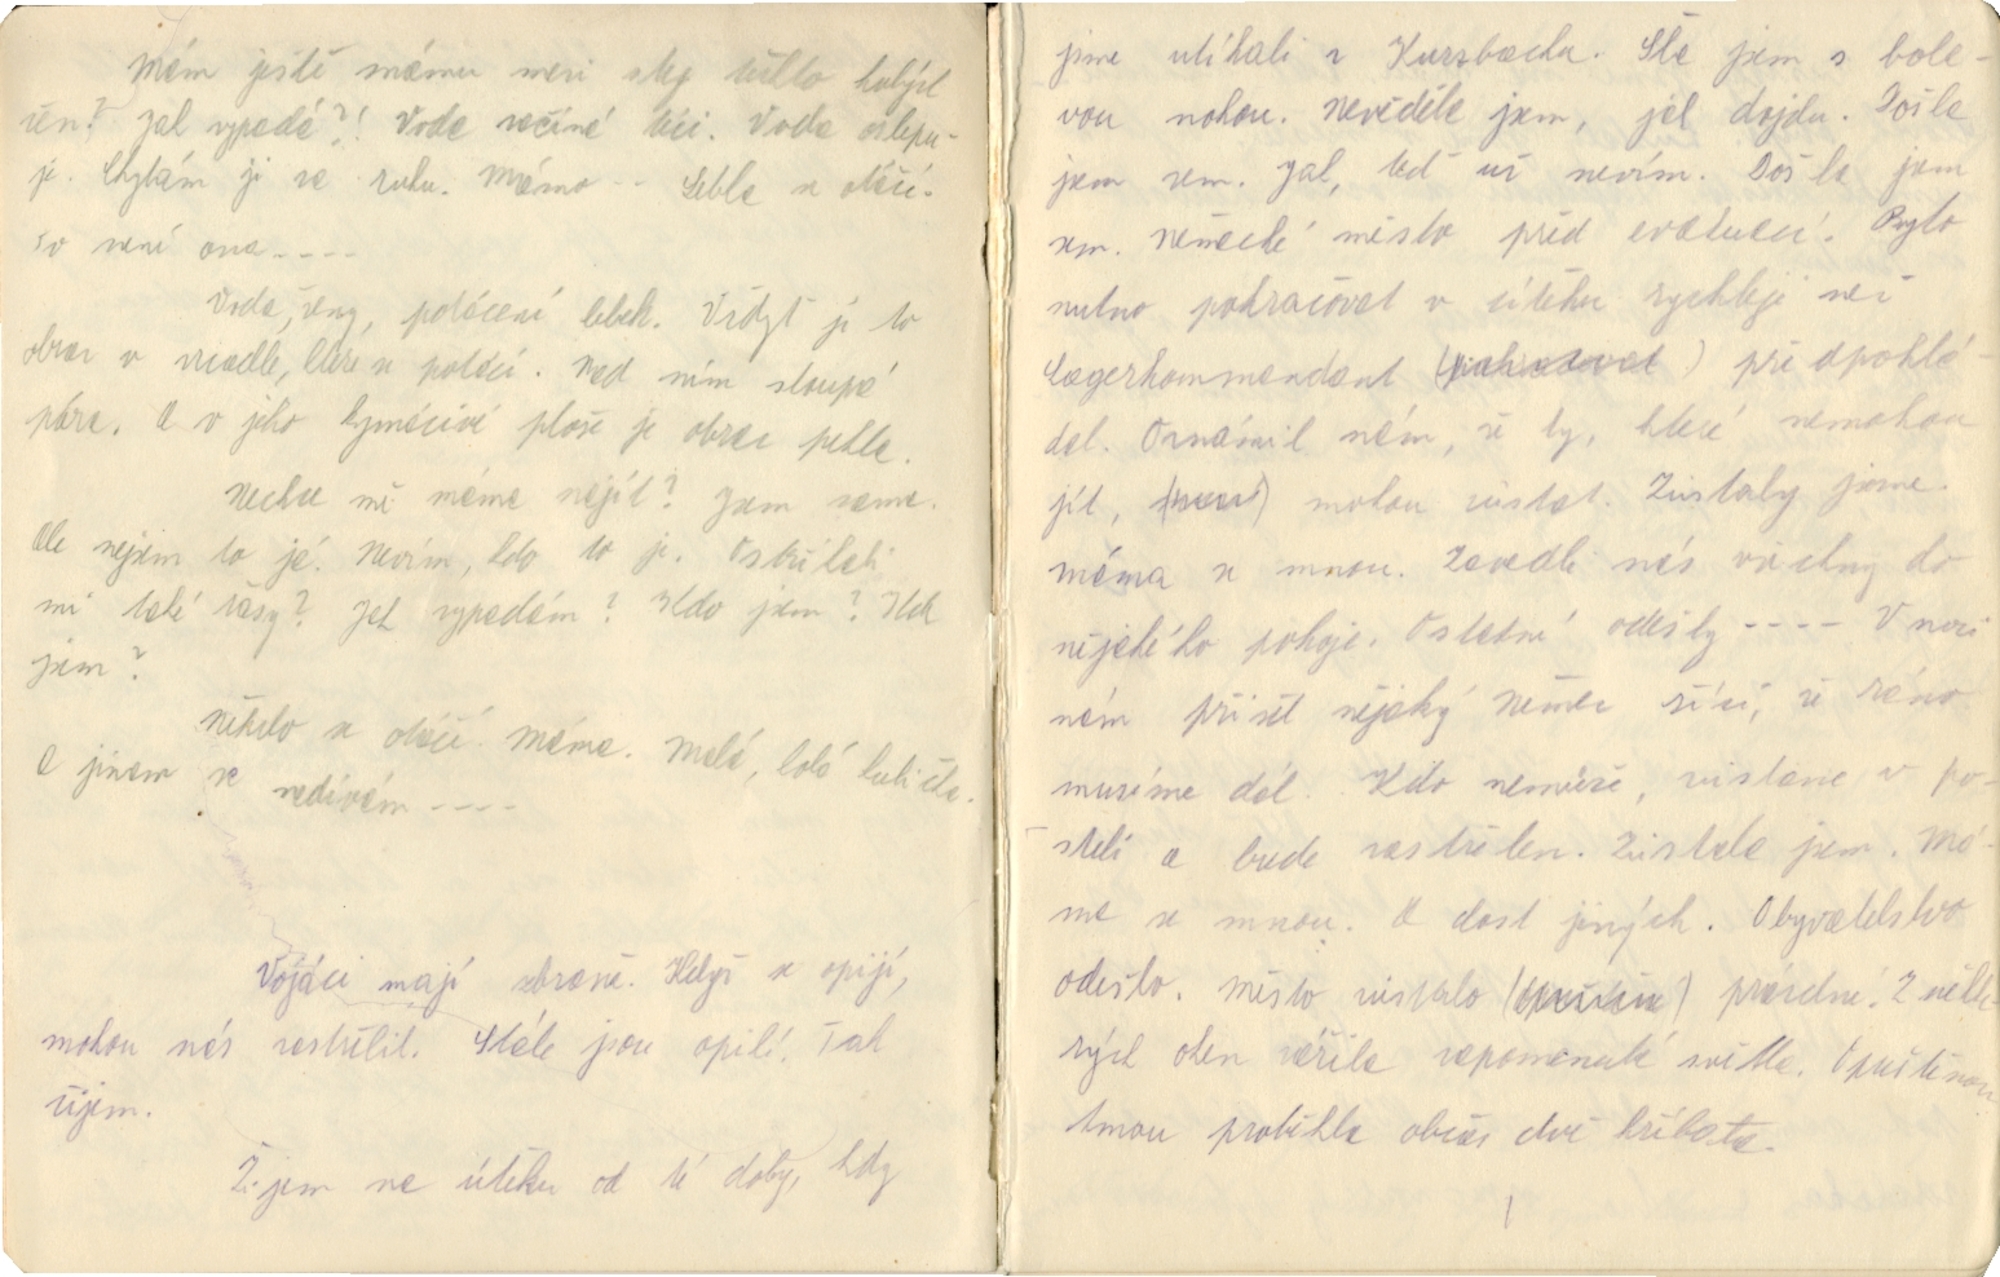 Mám ještě mámu mezi step těchto holých
žen? Jak vypadá?! Voda začíná téci. Voda oslepu-
je. Chytám ji za ruku. Mámo -- Lebka se otáčí.
To není ona ----
Voda, ženy, potácení lebek. Vždyť je to
obraz v zrcadle, které se potácí. Nad ním stoupá
pára. A v jeho kymácivé ploše je obraz pekla.
Nechce mě máma najít? Jsem sama.
Ale nejsem to já. Nevím, kdo to je. Ostříhali
mi také řasy? Jak vypadám? Kdo jsem? Kde
jsem?
Někdo se otáčí. Máma. Malá, holá kulička.
A jinam se nedívám ----
Vojáci mají zbraně. Když se opijí,
mohou nás zastřelit. Stále jsou opilí. Tak
žijem.
Žijem na útěku od té doby, kdy
jsme utíkali z Kurzbachu. Šla jsem s bola-
vou nohou. Nevěděla jsem, jak dojdu. Došla
jsem sem. Jak, teď už nevím. Došla jsem
sem. Německé město před evakuací. Bylo
nutno pokračovat v útěku rychleji než
Lagerkommandant (pokračovat) předpoklá-
dal. Oznámil nám, že ty, které nemohou
jít, (není) mohou zůstat. Zůstaly jsme.
máma se mnou. Zavedli nás všechny do
nějakého pokoje. Ostatní odešly ---- V noci
nám přišel nějaký Němec říci, že ráno
musíme dál. Kdo nemůže, zůstane v po-
steli a bude zastřelen. Zůstala jsem. Má-
ma se mnou. A dost jiných. Obyvatelstvo
odešlo. Město zůstalo prázdné. Z někte-
rých oken zářila zapomenutá světla. Opuštěnou
tmou proběhla občas dvě hříbata.